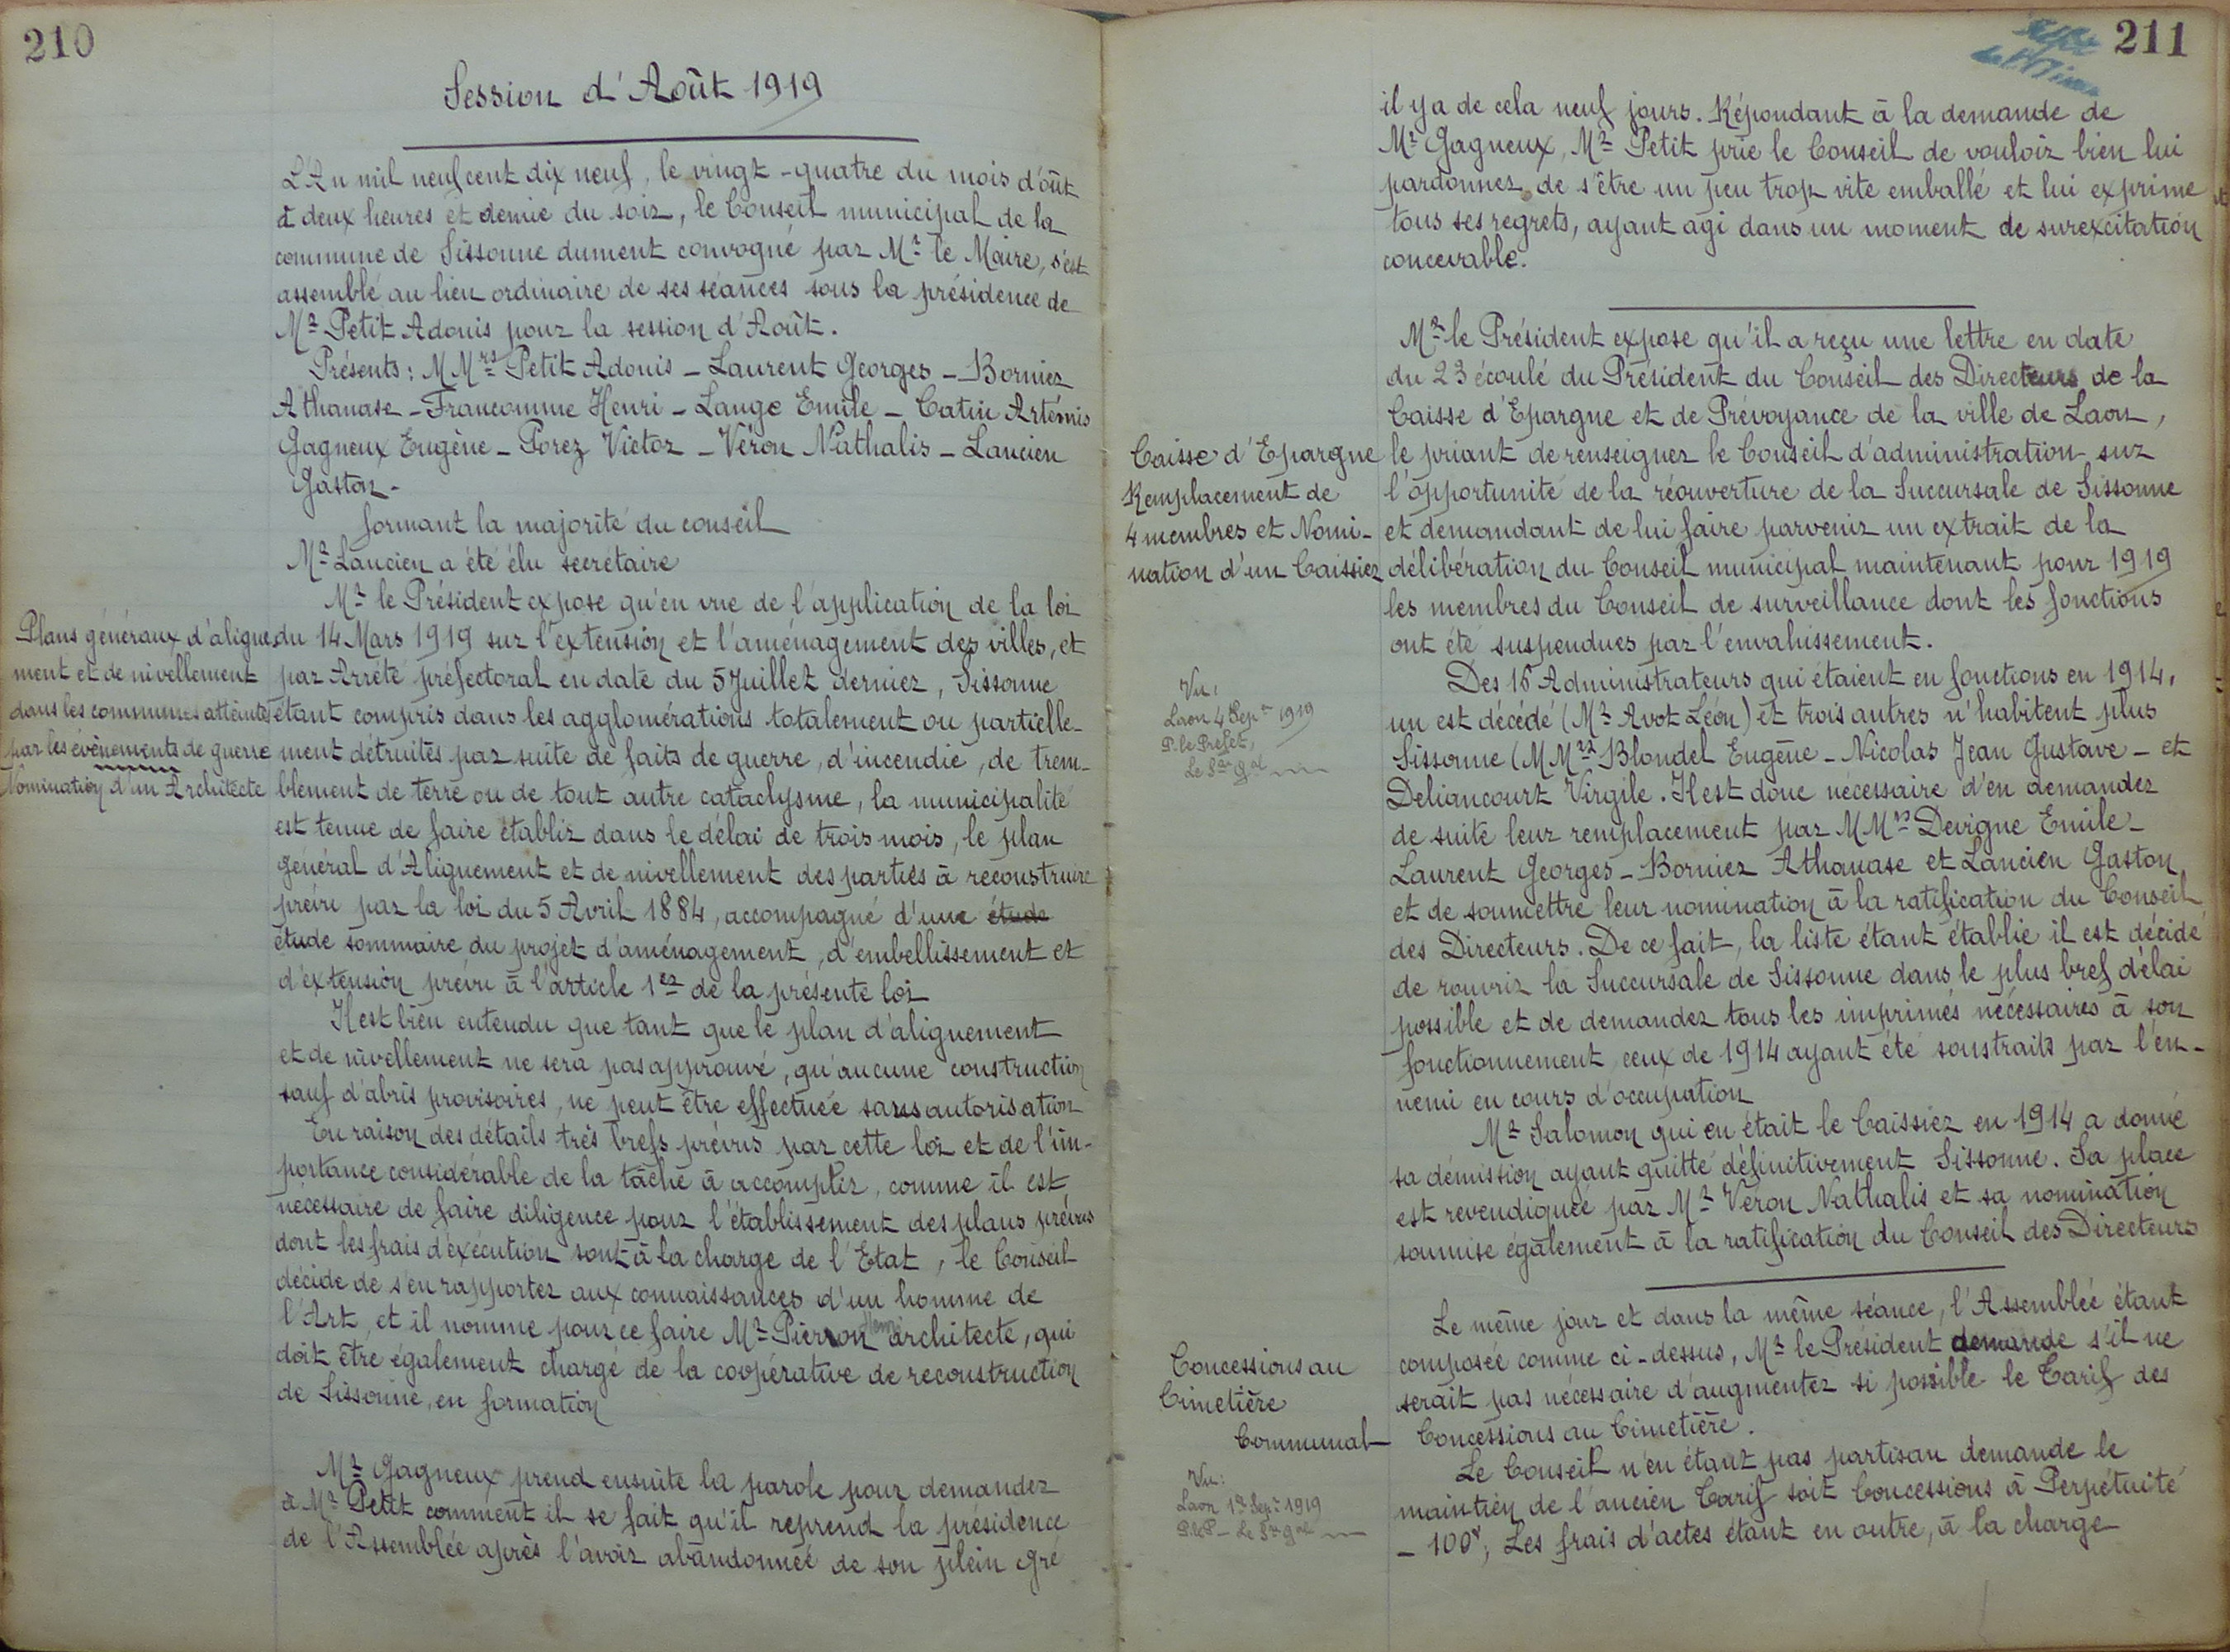 210
Session d'Août 1919
L'An mil neuf cent dix neuf, le vingt-quatre du mois d'oût
à deux heures et demie du soir, le Conseil municipal de la
commune de Sissonne dument convoqué par Mr le Maire, s'est
assemblé au lieu ordinaire de ses séances sous la présidence de
Mr Petit Adonis pour la session d'Août.
Présents: MMrs Petit Adonis - Laurent Georges - Borniez
Athanase - Francomme Henri - Lange Emile - Catin Artémis
Gagneux Eugène - Porez Victor - Véron Nathalis - Lancien
Gaston -
formant la majorité du conseil
Mr Lancien a été élu secrétaire
Mr le Président expose qu'en vue de l'application de la loi
du 14 Mars 1919 sur l'extension et l'aménagement des villes, et
par Arrêté préfectoral en date du 5 Juillet dernier, Sissonne
étant compris dans les agglomérations totalement ou partielle-
ment détruites par suite de faits de guerre, d'incendie, de trem-
blement de terre ou de tout autre cataclysme, la municipalité
est tenue de faire établir dans le délai de trois mois, le plan
général d'Alignement et de nivellement des parties à reconstruire
prévu par la loi du 5 Avril 1884, accompagné d'une étude
étude sommaire du projet d'aménagement, d'embellissement et
d'extension prévu à l'article 1er de la présente loi
Il est bien entendu que tant que le plan d'alignement
et de nivellement ne sera pas approuvé, qu'aucune construction
sauf d'abris provisoires, ne peut être effectuée sans autorisation
En raison des détails très brefs prévus par cette loi et de l'im-
portance considérable de la tâche à accomplir, comme il est
nécessaire de faire diligence pour l'établissement des plans prévus
dont les frais d'exécution sont à la charge de l'Etat, le Conseil
décide de s'en rapporter aux connaissances d'un homme de
l'Art, et il nomme pour ce faire Mr Pierron Henri architecte, qui
doit être également chargé de la coopérative de reconstruction
de Sissonne, en formation
Mr Gagneux prend ensuite la parole pour demander
à Mr Petit comment il se fait qu'il reprend la présidence
de l'Assemblée après l'avoir abandonnée de son plein gré
Plans généraux d'aligne
ment et de nivellement
dans les communes atteintes
par les évènements de guerre
Nomination d'un Architecte
211
il y a de cela neuf jours. Répondant à la demande de
Mr Gagneux, Mr Petit prie le Conseil de vouloir bien lui
pardonner de s'être un peu trop vite emballé et lui exprime
tous ses regrets, ayant agi dans un moment de surexcitation
concevable.
Mr le Président expose qu'il a reçu une lettre en date
du 23 écoulé du Président du Conseil des Directeurs de la
Caisse d'Epargne et de Prévoyance de la ville de Laon,
le priant de renseigner le Conseil d'administration sur
l'opportunité de la réouverture de la Succursale de Sissonne
et demandant de lui faire parvenir un extrait de la
délibération du Conseil municipal maintenant pour 1919
les membres du Conseil de surveillance dont les fonctions
ont été suspendues par l'envahissement.
Des 15 Administrateurs qui étaient en fonctions en 1914,
un est décédé (Mr Avot Léon) et trois autres n'habitent plus
Sissonne (MMrs Blondel Eugène - Nicolas Jean Gustave - et
Deliancourt Virgile. Il est donc nécessaire d'en demander
de suite leur remplacement par MMrs Devigne Emile -
Laurent Georges - Borniez Athanase et Lancien Gaston
et de soumettre leur nomination à la ratification du Conseil
des Directeurs. De ce fait, la liste étant établie il est décidé
de rouvrir la Succursale de Sissonne dans le plus bref délai
possible et de demander tous les imprimés nécessaires à son
fonctionnement, ceux de 1914 ayant été soustraits par l'en-
nemi en cours d'occupation
Mr Salomon qui en était le Caissier en 1914 a donné
sa démission ayant quitté définitivement Sissonne. Sa place
est revendiquée par Mr Véron Nathalis et sa nomination
soumise également à la ratification du Conseil des Directeurs
Le même jour et dans la même séance, l'Assemblée étant
composée comme ci-dessus, Mr le Président demande s'il ne
serait pas nécessaire d'augmenter si possible le Tarif des
Concessions au Cimetière.
Le Conseil n'en étant pas partisan demande le
maintien de l'ancien Tarif soit Concessions à Perpétuité
- 100f, Les frais d'actes étant en outre, à la charge
Caisse d'Epargne
Remplacement de
4 membres et Nomi-
nation d'un Caissier
Vu:
Laon 4 Sepre 1919
P. le Préfet,
Le Sre Gal
Concessions au
Cimetière
Communal
Vu:
Laon 1er Sepre 1919
P. le P - Le Sre Gal